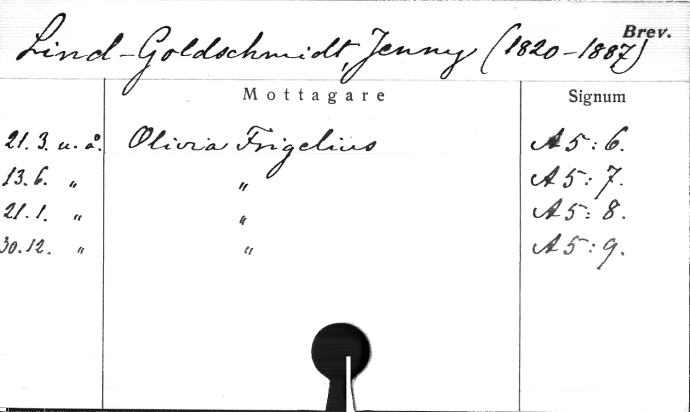 Brev.
Lind-Goldschmidt, Jenny (1820-1887)
Mottagare Signum
21.3. u. å. Olivia Frigelius A 5:6.
13.6. „ „ A 5:7.
21.1. „ „ A 5:8.
30.12. „ „ A 5:9.